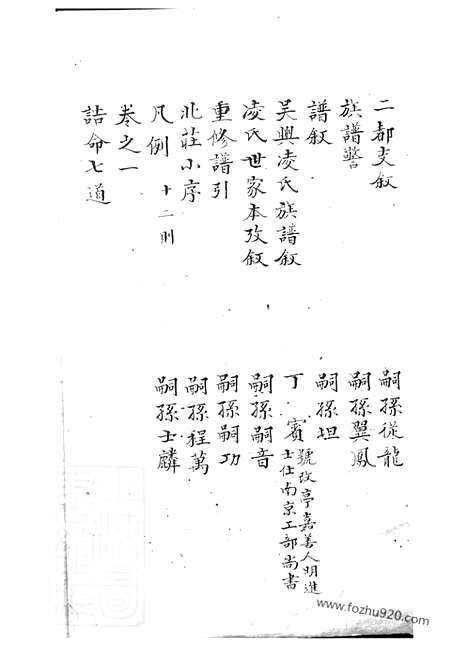 二都支叙 嗣孫從龍
族譜警 嗣孫翼鳳
譜叙 嗣孫坦
吴興凌氏族譜叙 丁 賓 號改亭嘉善人明進士仕南京工部尚書
凌氏世家本攷叙 嗣孫嗣音
重修譜引 嗣孫嗣功
北莊小序 嗣孫程萬
凡例 十二則 嗣孫士麟
卷之一
誥命七道
www.fozhu920.com